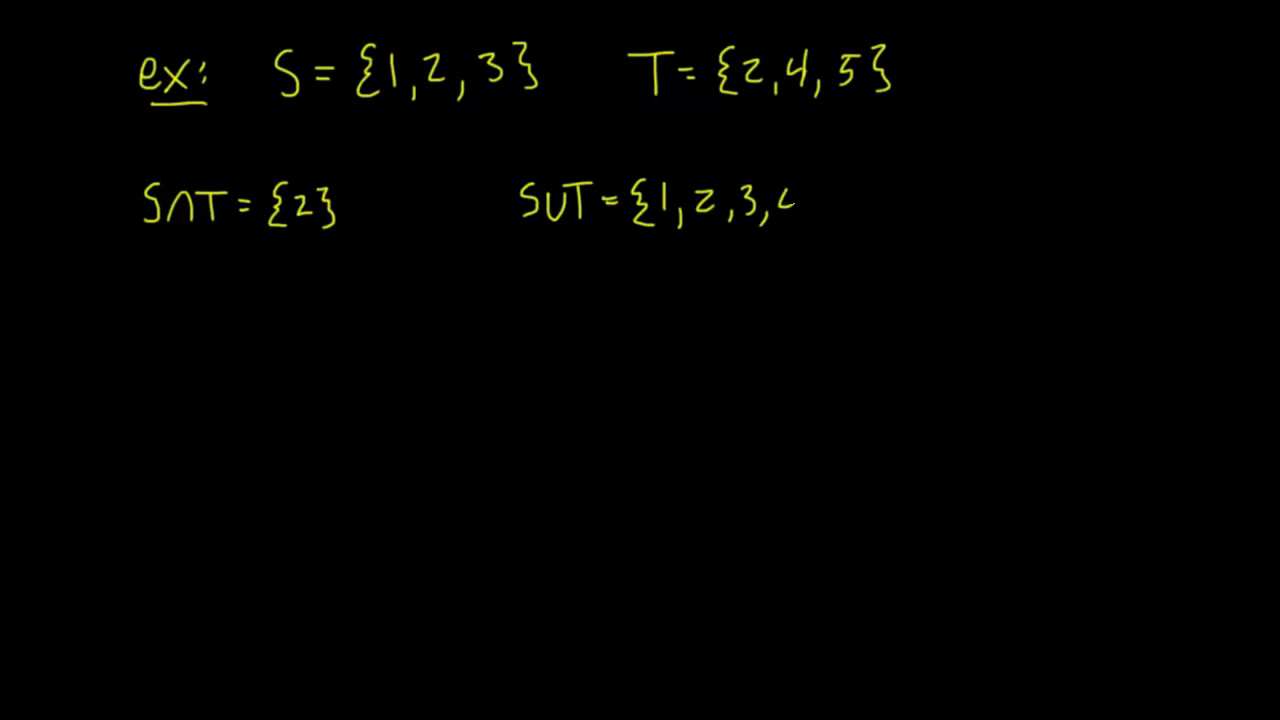 ex: S = {1, 2, 3} T = {2, 4, 5}
S∩T = {2} S∪T = {1, 2, 3,